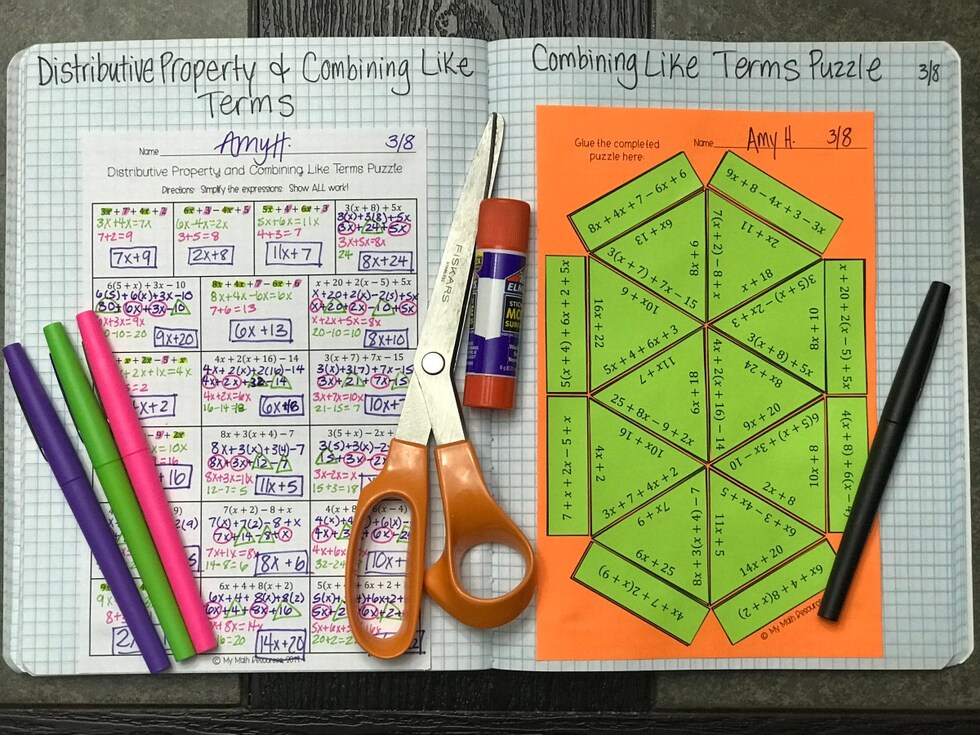 Distributive Property & Combining Like
Terms
Name Amy H. 3/8
Distributive Property and Combining Like Terms Puzzle
Directions: Simplify the expressions. Show ALL work!
3x + 7 + 4x + 2
3x+4x=7x
7+2=9
7x+9
6x + 3 − 4x + 5
6x-4x=2x
3+5=8
2x+8
5x + 4 + 6x + 3
5x+6x=11x
4+3=7
11x+7
3(x + 8) + 5x
3(x)+3(8)+5x
3x+24+5x
3x+5x=8x
24
8x+24
6(5 + x) + 3x − 10
6(5)+6(x)+3x-10
30+6x+3x-10
6x+3x=9x
20-10=10
9x+20
8x + 4x + 7 − 6x + 6
8x+4x-6x=6x
7+6=13
6x+13
x + 20 + 2(x − 5) + 5x
x+20+2(x)-2(5)+5x
x+20+2x-10+5x
x+2x+5x=8x
20-10=10
8x+10
+ x + 2x − 5 + x
+2x+1x=4x
=2
x+2
4x + 2(x + 16) − 14
4x+2(x)+2(16)-14
4x+2x+32-14
4x+2x=6x
6x+18
3(x + 7) + 7x − 15
3(x)+3(7)+7x-15
3x+21+7x-15
3x+7x=10x
21-15=7
10x+
8x + 3(x + 4) − 7
8x+3(x)+3(4)-7
8x+3x+12-7
8x+3x=11x
12-7=5
11x+5
3(5 + x) − 2x
3(5)+3(x)-2x
15+3x-2x
3x-2x=x
15+3=18
7(x + 2) − 8 + x
7(x)+7(2)-8+x
7x+14-8+x
7x+1x=8x
14-8=6
8x+6
4(x + 8)
6(x − 4)
4x+6x
32-24
10x+
6x + 4 + 8(x + 2)
6x+4+8(x)+8(2)
6x+4+8x+16
6x+8x=14x
=20
14x+20
5(x + 6x + 2 +
20+2=2
© My Math Resources 2019
FISKARS
ELM
Combining Like Terms Puzzle 3/8
Glue the completed
puzzle here:
Name Amy H. 3/8
8x + 4x + 7 − 6x + 6
6x + 13
9x + 8 − 4x + 3 − 3x
2x + 11
3(x + 7) + 7x − 15
10x + 6
8x + 6
7(x + 2) − 8 + x
x + 18
3(5 + x) − 2x + 3
5(x + 4) + 6x + 2 + 5x
16x + 22
5x + 4 + 6x + 3
11x + 7
6x + 18
4x + 2(x + 16) − 14
8x + 24
3(x + 8) + 5x
8x + 10
x + 20 + 2(x − 5) + 5x
7 + x + 2x − 5 + x
4x + 2
25 + 8x − 9 + 2x
10x + 16
9x + 20
6(5 + x) + 3x − 10
10x + 8
4(x + 8) + 6(x − 4)
3x + 7 + 4x + 2
7x + 9
8x + 3(x + 4) − 7
11x + 5
2x + 8
6x + 3 − 4x + 5
6x + 25
4x + 7 + 2(x + 9)
14x + 20
6x + 4 + 8(x + 2)
© My Math Resources